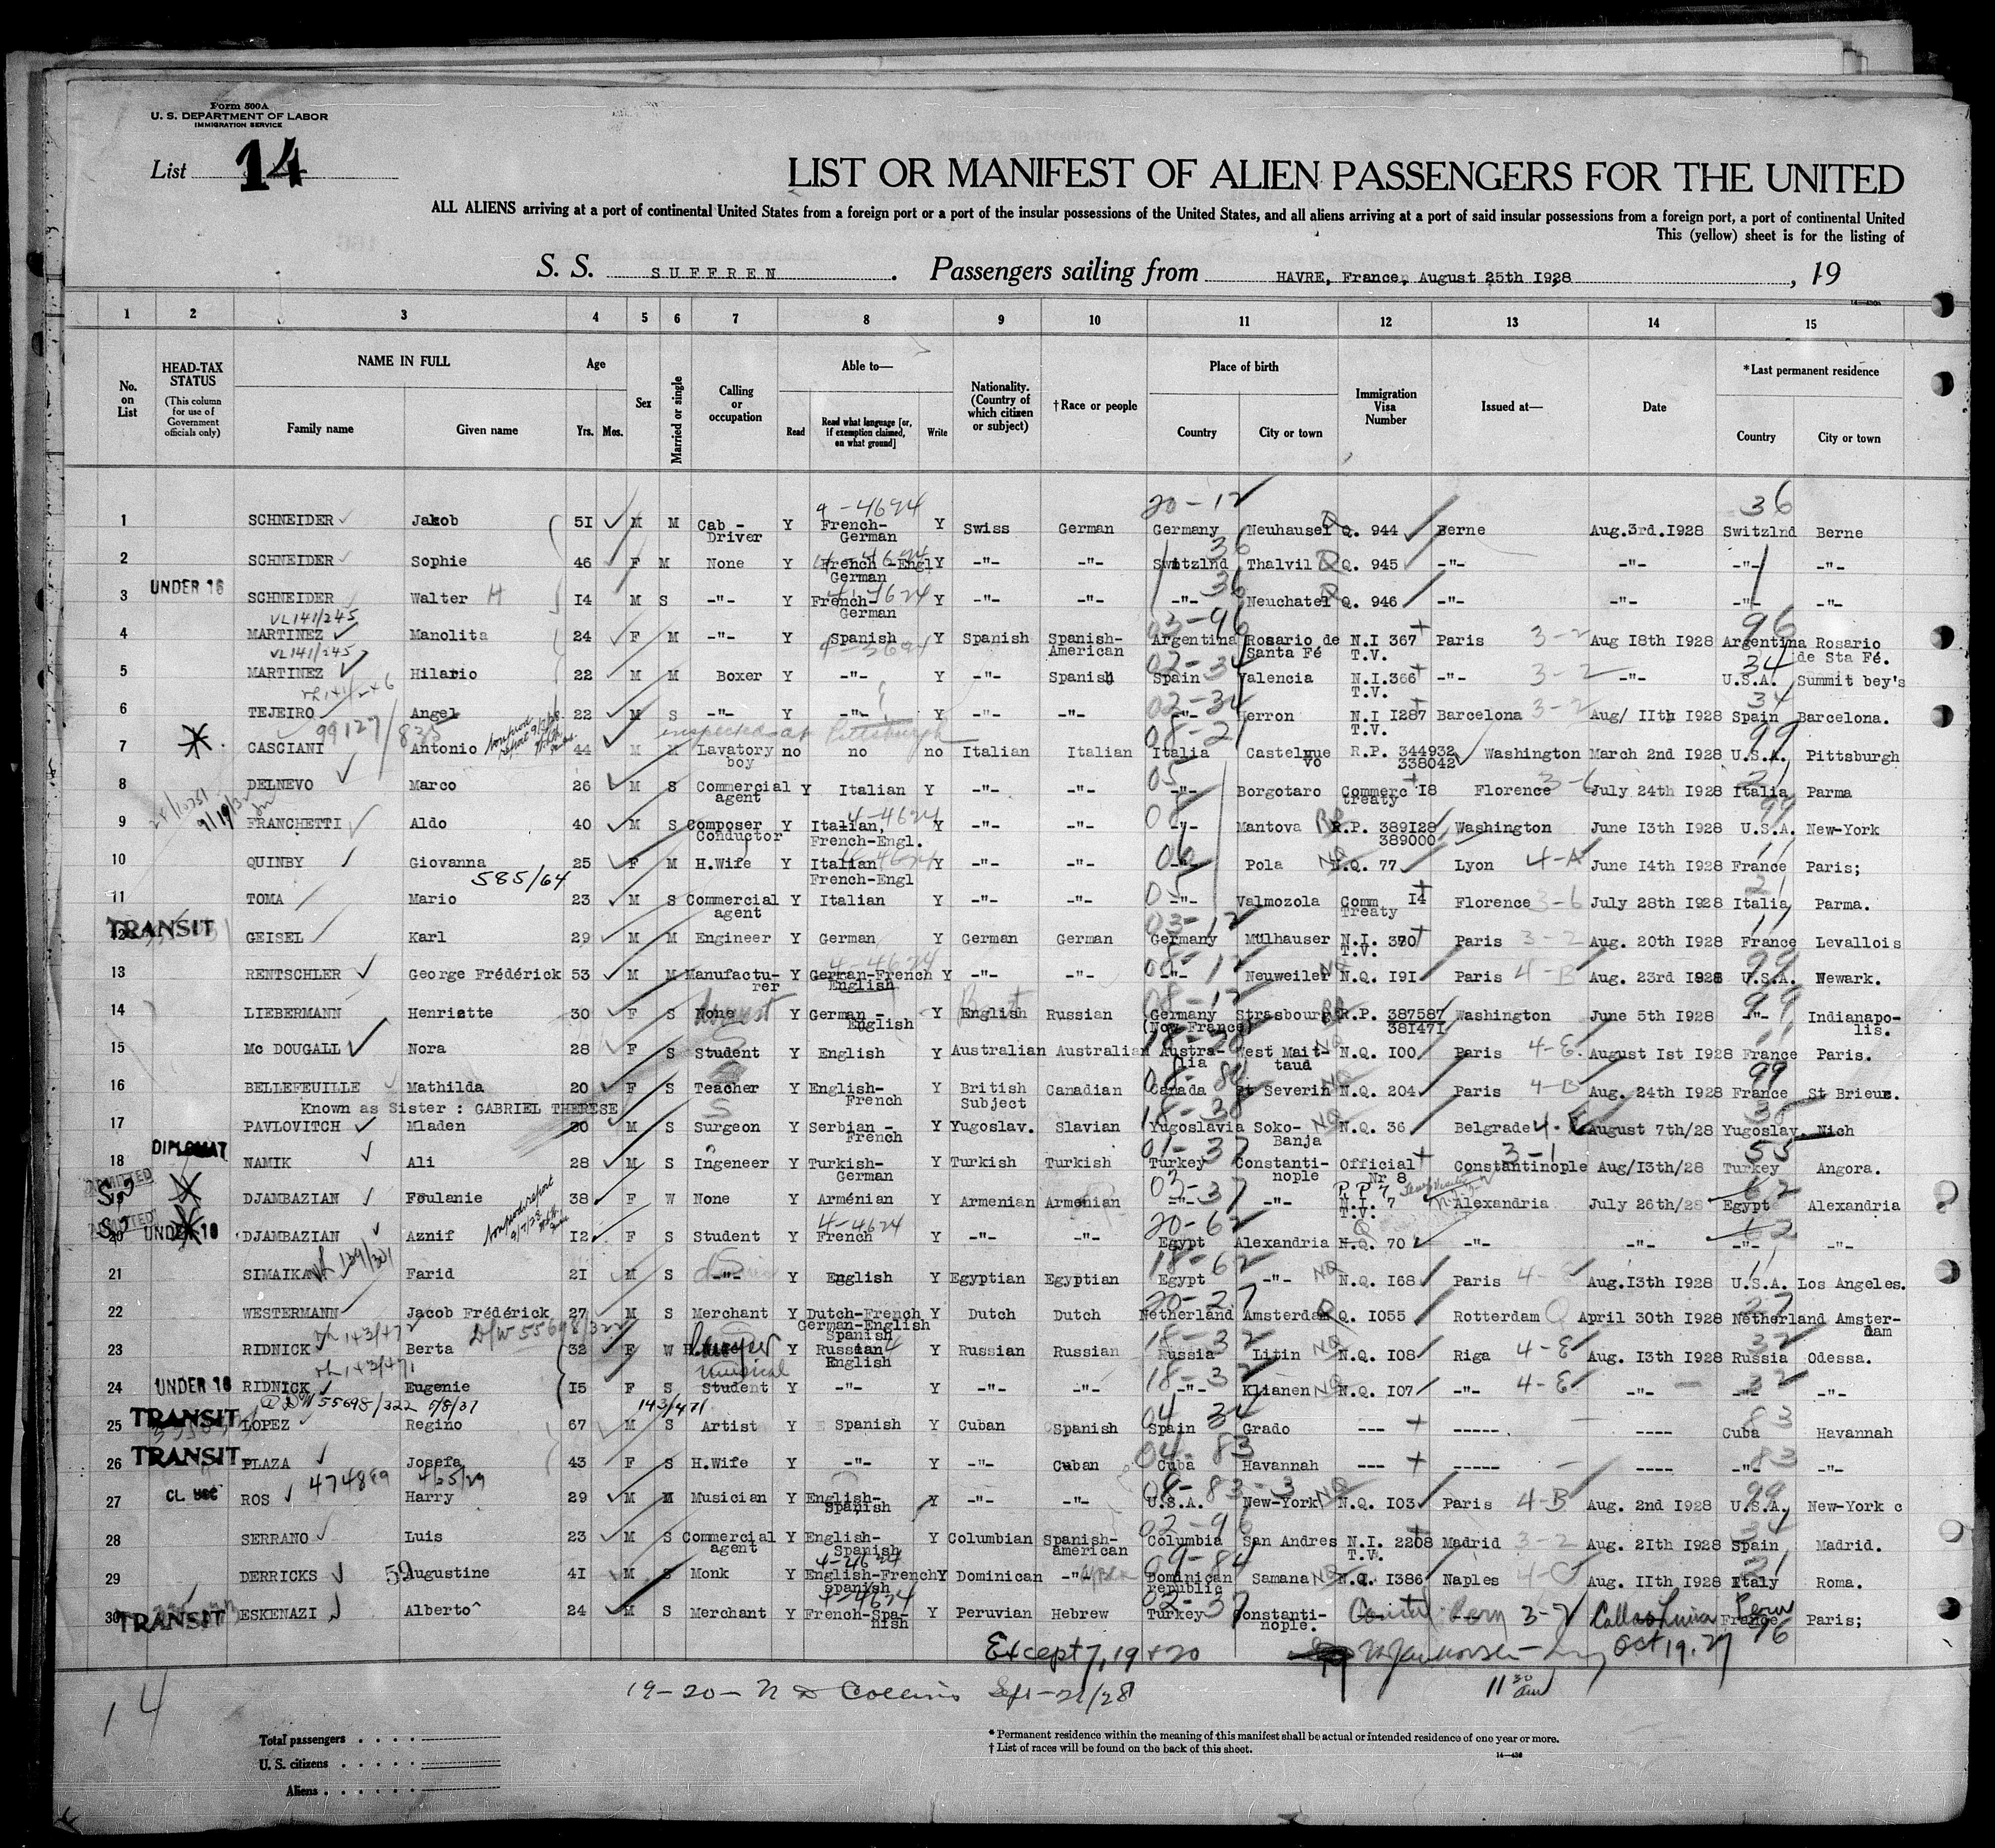 Form 500A
U. S. DEPARTMENT OF LABOR
IMMIGRATION SERVICE
List 14
LIST OR MANIFEST OF ALIEN PASSENGERS FOR THE UNITED
ALL ALIENS arriving at a port of continental United States from a foreign port or a port of the insular possessions of the United States, and all aliens arriving at a port of said insular possessions from a foreign port, a port of continental United
This (yellow) sheet is for the listing of
S. S. SUFFREN . Passengers sailing from HAVRE, France, August 25th I928 , 19
1 2 3 4 5 6 7 8 9 10 11 12 13 14 15
No. on List
HEAD-TAX STATUS (This column for use of Government officials only)
NAME IN FULL
Family name Given name
Age
Yrs. Mos.
Sex
Married or single
Calling or occupation
Able to—
Read Read what language [or, if exemption claimed, on what ground] Write
Nationality. (Country of which citizen or subject)
†Race or people
Place of birth
Country City or town
Immigration Visa Number
Issued at—
Date
*Last permanent residence
Country City or town
4-4624 20-12 36
1 SCHNEIDER Jakob 5I M M Cab - Driver Y French-German Y Swiss German Germany Neuhausel Q. 944 Berne Aug.3rd.I928 Switzlnd Berne
36
2 SCHNEIDER Sophie 46 F M None Y French -Engl German Y -"- -"- Switzlnd Thalvil Q. 945 -"- -"- -"- -"-
UNDER 16
3 SCHNEIDER Walter H I4 M S -"- Y French-German Y -"- -"- -"- Neuchatel Q. 946 -"- -"- -"- -"-
VL141/245 03-96 96
4 MARTINEZ Manolita 24 F M -"- Y Spanish Y Spanish Spanish-American Argentina Rosario de Santa Fé N.I 367 T.V. Paris 3-2 Aug I8th I928 Argentina Rosario de Sta Fé.
VL141/245 02-34 34
5 MARTINEZ Hilario 22 M M Boxer Y -"- Y -"- Spanish Spain Valencia N.I.366 T.V. -"- 3-2 -"- U.S.A. Summit bey's
02-34 34
6 TEJEIRO Angel 22 M S -"- Y -"- Y -"- -"- -"- Herron N.I I287 T.V. Barcelona 3-2 Aug/ IIth I928 Spain Barcelona.
99127/835 inspected at Pittsburgh 08-21 99
7 CASCIANI Antonio 44 M M Lavatory boy no no no Italian Italian Italia Castelnuovo R.P. 344932 338042 Washington March 2nd I928 U.S.A. Pittsburgh
05 21
8 DELNEVO Marco 26 M S Commercial agent Y Italian Y -"- -"- -"- Borgotaro Commerc I8 treaty Florence 3-6 July 24th I928 Italia Parma
4-4624 08 99
9 FRANCHETTI Aldo 40 M S Composer Conductor Y Italian, French-Engl. Y -"- -"- -"- Mantova R.P. 389I28 389000 Washington June I3th I928 U.S.A. New-York
06
10 QUINBY Giovanna 25 F M H.Wife Y Italian French-Engl Y -"- -"- -"- Pola N.Q. 77 Lyon 4-A June I4th I928 France Paris;
585/64 05 21
11 TOMA Mario 23 M S Commercial agent Y Italian Y -"- -"- -"- Valmozola Comm I4 Treaty Florence 3-6 July 28th I928 Italia Parma.
TRANSIT 03-12
12 GEISEL Karl 29 M M Engineer Y German Y German German Germany Mülhauser N.I. 370 T.V. Paris 3-2 Aug. 20th I928 France Levallois
4-4624 08-12 99
13 RENTSCHLER George Frédérick 53 M M Manufacturer Y German-French English Y -"- -"- -"- Neuweiler N.Q. I9I Paris 4-B Aug. 23rd I928 U.S.A. Newark.
08-12 99
14 LIEBERMANN Henriette 30 F S None Y German - English Y English Russian Germany (Now France) Strasbourg R.P. 387587 38I47I Washington June 5th I928 -"- Indianapo-lis.
15 Mc DOUGALL Nora 28 F S Student Y English Y Australian Australian Austra-lia West Mait-taud N.Q. I00 Paris 4-E August Ist I928 France Paris.
08-84 99
16 BELLEFEUILLE Mathilda 20 F S Teacher Y English-French Y British Subject Canadian Canada St Severin N.Q. 204 Paris 4-B Aug. 24th I928 France St Brieux.
Known as Sister : GABRIEL THERESE
18-38 35
17 PAVLOVITCH Mladen 30 M S Surgeon Y Serbian - French Y Yugoslav. Slavian Yugoslavia Soko-Banja N.Q. 36 Belgrade 4-E August 7th/28 Yugoslav. Nich
DIPLOMAT 01-37 3-1 55
18 NAMIK Ali 28 M S Ingeneer Y Turkish-German Y Turkish Turkish Turkey Constanti-nople Official Nr 8 Constantinople Aug/I3th/28 Turkey Angora.
ADMITTED 03-37 62
DJAMBAZIAN Foulanie 38 F W None Y Arménian Y Armenian Armenian -"- -"- N.I. 7 T.V. Alexandria July 26th/28 Egypt Alexandria
ADMITTED UNDER 16 4-4624 20-62 62
20 DJAMBAZIAN Aznif I2 F S Student Y French Y -"- -"- Egypt Alexandria N.Q. 70 -"- -"- -"- -"-
18-62
21 SIMAIKA Farid 2I M S -"- Y English Y Egyptian Egyptian Egypt -"- N.Q. I68 Paris 4-E Aug.I3th I928 U.S.A. Los Angeles.
20-27 27
22 WESTERMANN Jacob Frédérick 27 M S Merchant Y Dutch-French German-English Spanish Y Dutch Dutch Netherland Amsterdam Q. I055 Rotterdam Q April 30th I928 Netherland Amster-dam
143/472 18-32 32
23 RIDNICK Berta 32 F W Y Russian English Y Russian Russian Russia Litin N.Q. I08 Riga 4-E Aug. I3th I928 Russia Odessa.
143/471 Musical 18-32 32
24 UNDER 16 RIDNICK Eugenie I5 F S Student Y -"- Y -"- -"- -"- Klianen N.Q. I07 -"- 4-E -"- -"- -"-
55698/322 5/8/37 143/471
TRANSIT 04 34 83
25 LOPEZ Regino 67 M S Artist Y Spanish Y Cuban Spanish Spain Grado --- ----- ---- Cuba Havannah
TRANSIT 04-83 83
26 PLAZA Josefa 43 F S H.Wife Y -"- Y -"- Cuban Cuba Havannah --- ----- ---- -"- -"-
474889 4/25/29 08-83-3 99
27 ROS Harry 29 M M Musician Y English-Spanish Y -"- -"- U.S.A. New-York N.Q. I03 Paris 4-B Aug. 2nd I928 U.S.A. New-York c
02-96 34
28 SERRANO Luis 23 M S Commercial agent Y English-Spanish Y Columbian Spanish-american Columbia San Andres N.I. 2208 T.V. Madrid 3-2 Aug. 2Ith I928 Spain Madrid.
09-84 21
29 DERRICKS Augustine 4I M S Monk Y English-French Spanish Y Dominican -"- Dominican republic Samana N.Q. I386 Naples 4-C Aug. IIth I928 Italy Roma.
TRANSIT 4-4624 02-37
30 ESKENAZI Alberto 24 M S Merchant Y French-Spa-nish Y Peruvian Hebrew Turkey Constanti-nople. 3-2 Callao Lima France Paris; Peru 76
Except 7, 19 + 20 Oct 19.27
19-20- N D Collins Sept-21/28 11 30 am
14
Total passengers . . . .
U. S. citizens . . . . .
Aliens . . . .
* Permanent residence within the meaning of this manifest shall be actual or intended residence of one year or more.
† List of races will be found on the back of this sheet.